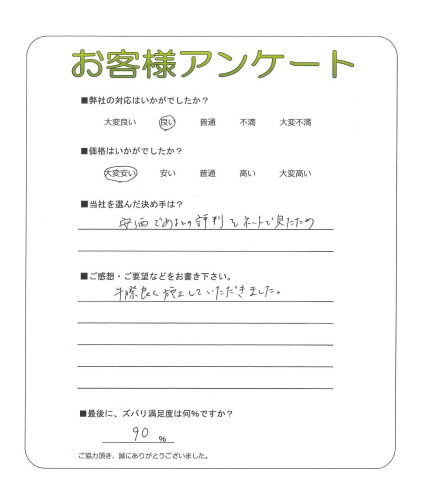 お客様アンケート
■弊社の対応はいかがでしたか？
大変良い 良い 普通 不満 大変不満
■価格はいかがでしたか？
大変安い 安い 普通 高い 大変高い
■当社を選んだ決め手は？
安価であるとの評判をネットで見たため
■ご感想・ご要望などをお書き下さい。
手際良く施工していただきました。
■最後に、ズバリ満足度は何％ですか？
90 ％
ご協力頂き、誠にありがとうございました。